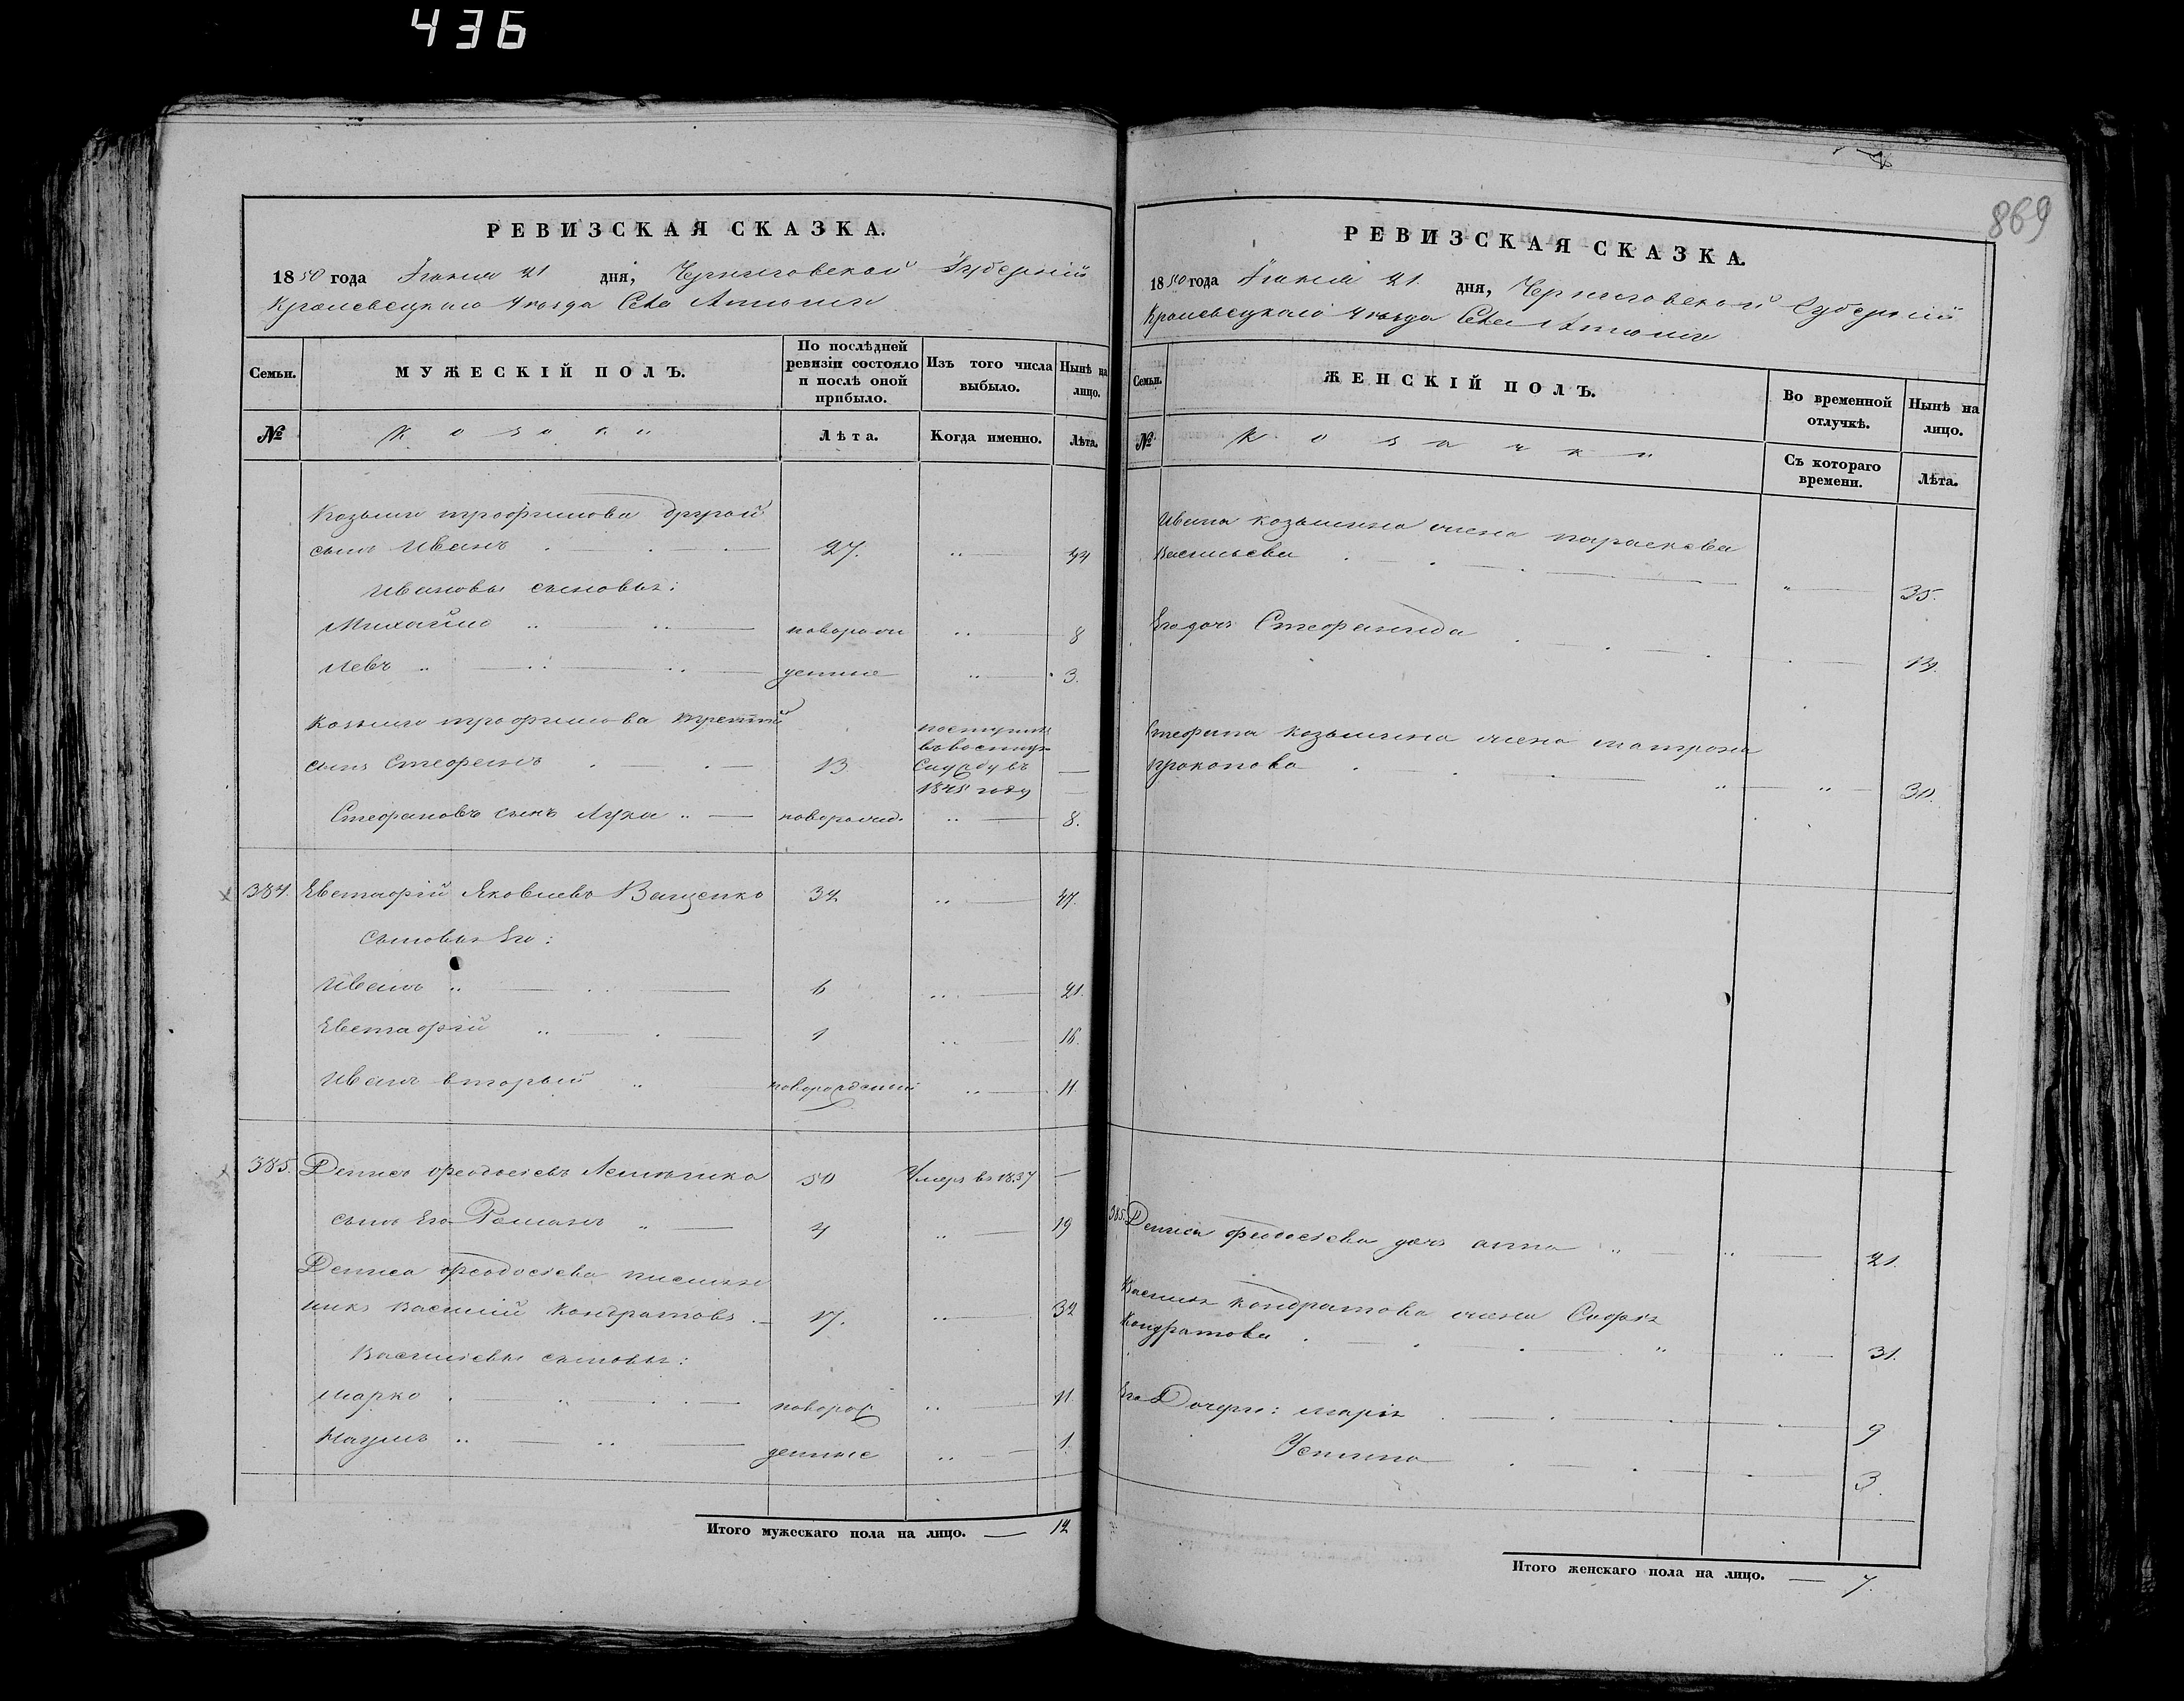 436
869
РЕВИЗСКАЯ СКАЗКА.
1850 года Іюня 21 дня, Черниговской Губерніи
Кролевецкаго Уѣзда Села
Семьи. МУЖЕСКІЙ ПОЛЪ. По послѣдней ревизіи состояло и послѣ оной прибыло. Изъ того числа выбыло. Нынѣ на лицо.
№ Козаки Лѣта. Когда именно. Лѣта.
Козьмы Трофимова другой
сынъ Иванъ 27.
Ивановы сыновья:
Михайло новорож 8
Левъ денные 3.
Козьмы Трофимова третій
сынъ Стефанъ 13 поступилъ въ военную службу въ 1845 году —
Стефановъ сынъ Лука новорожд. 8.
384. Евстафій Яковлевъ Ващенко 32 47.
Сыновья Его:
Иванъ 6 21.
Евстафій 1 16.
Иванъ вторый новорожденный 11
385. Денисъ Феодосіевъ 50 Умеръ въ 1837 —
сынъ Его Романъ 4 19
Дениса Феодосіева племян
никъ Василій Кондратовъ 17. 32
Василіевы сыновья:
Марко новорож 11
Наумъ денные 1.
Итого мужескаго пола на лицо. — 12
РЕВИЗСКАЯ СКАЗКА.
1850 года Іюня 21 дня, Черниговской Губерніи
Кролевецкаго Уѣзда Села
Семьи. ЖЕНСКІЙ ПОЛЪ. Во временной отлучкѣ. Нынѣ на лицо.
№ Козачки Съ котораго времени. Лѣта.
Ивана Козьмина жена Параскева
Васильева 35.
Его дочь Стефанида
Стефана Козьмина жена Матрона
Прокопова 30.
385. Дениса Феодосіева дочь Анна 21.
Василія Кондратова жена Софія
Кондратова 31.
Его Дочери: Марія 9
Устина 3.
Итого женскаго пола на лицо. — 7.